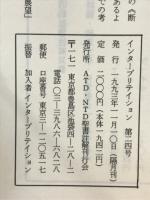 の《断
あるよ
での考
展望」
インタープリテイション 第二四号
発行 一九九三年一一月一〇日(隔月刊)
定価 二〇〇〇円(本体一九四二円)
発行所 ATD・NTD聖書註解刊行会
〒一七一 東京都豊島区池袋四—八—一
電話 〇三—三九八六—六八二八
郵便 口座番号 東京三—一〇五一七
振替 加入者 インタープリテイション